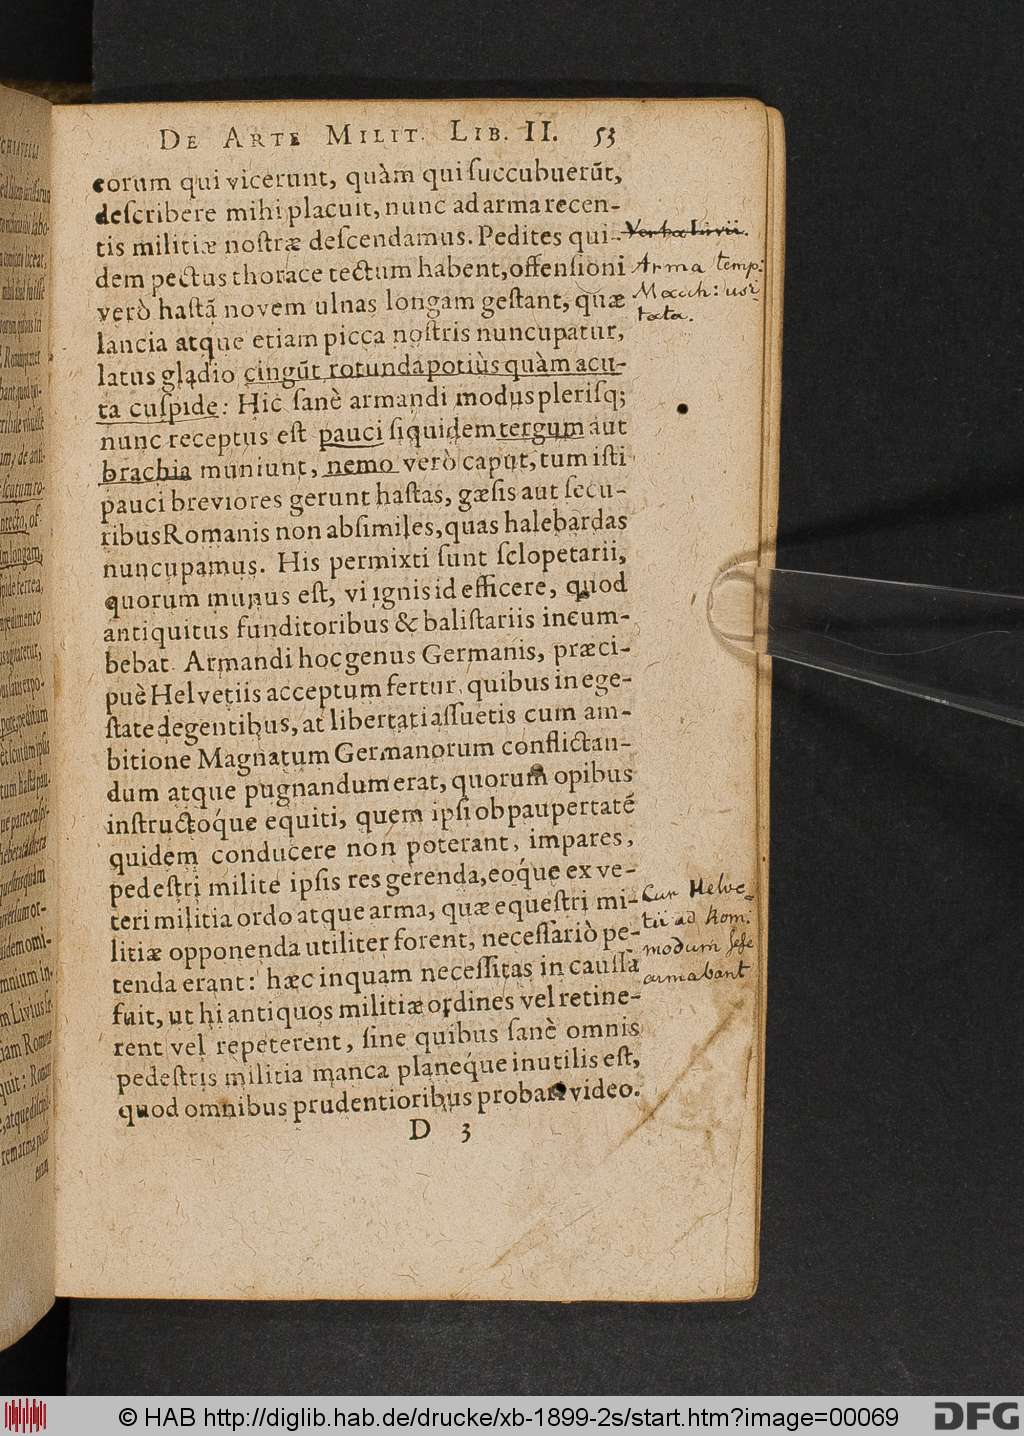 De Arte Milit. Lib. II. 53
eorum qui vicerunt, quàm qui ſuccubuerūt,
deſcribere mihi placuit, nunc ad arma recen-
tis militiæ noſtræ deſcendamus. Pedites qui-
Verba Livii.
dem pectus thorace tectum habent, offenſioni
Arma temp:
verò haſtā novem ulnas longam geſtant, quæ
Macch: usi-
lancia atque etiam picca noſtris nuncupatur,
tata.
latus gladio cingūt rotunda potiùs quàm acu-
ta cuſpide: Hic ſanè armandi modus plerisq;
nunc receptus eſt pauci ſiquidem tergum aut
brachia muniunt, nemo verò caput, tum iſti
pauci breviores gerunt haſtas, gæſis aut ſecu-
ribus Romanis non abſimiles, quas halebardas
nuncupamus. His permixti ſunt ſclopetarii,
quorum munus eſt, vi ignis id efficere, quod
antiquitus funditoribus & baliſtariis incum-
bebat. Armandi hoc genus Germanis, præci-
puè Helvetiis acceptum fertur, quibus in ege-
ſtate degentibus, at libertati aſſuetis cum am-
bitione Magnatum Germanorum conflictan-
dum atque pugnandum erat, quorum opibus
inſtructóque equiti, quem ipſi ob paupertatē
quidem conducere non poterant, impares,
pedeſtri milite ipſis res gerenda, eóque ex ve-
teri militia ordo atque arma, quæ equeſtri mi-
Cur Helve-
litiæ opponenda utiliter forent, neceſſariò pe-
tii ad Rom:
tenda erant: hæc inquam neceſſitas in cauſſâ
modum ſeſe
fuit, ut hi antiquos militiæ ordines vel retine-
armabant
rent vel repeterent, ſine quibus ſanè omnis
pedeſtris militia manca planéque inutilis eſt,
quod omnibus prudentioribus probari video.
D 3
© HAB http://diglib.hab.de/drucke/xb-1899-2s/start.htm?image=00069
DFG